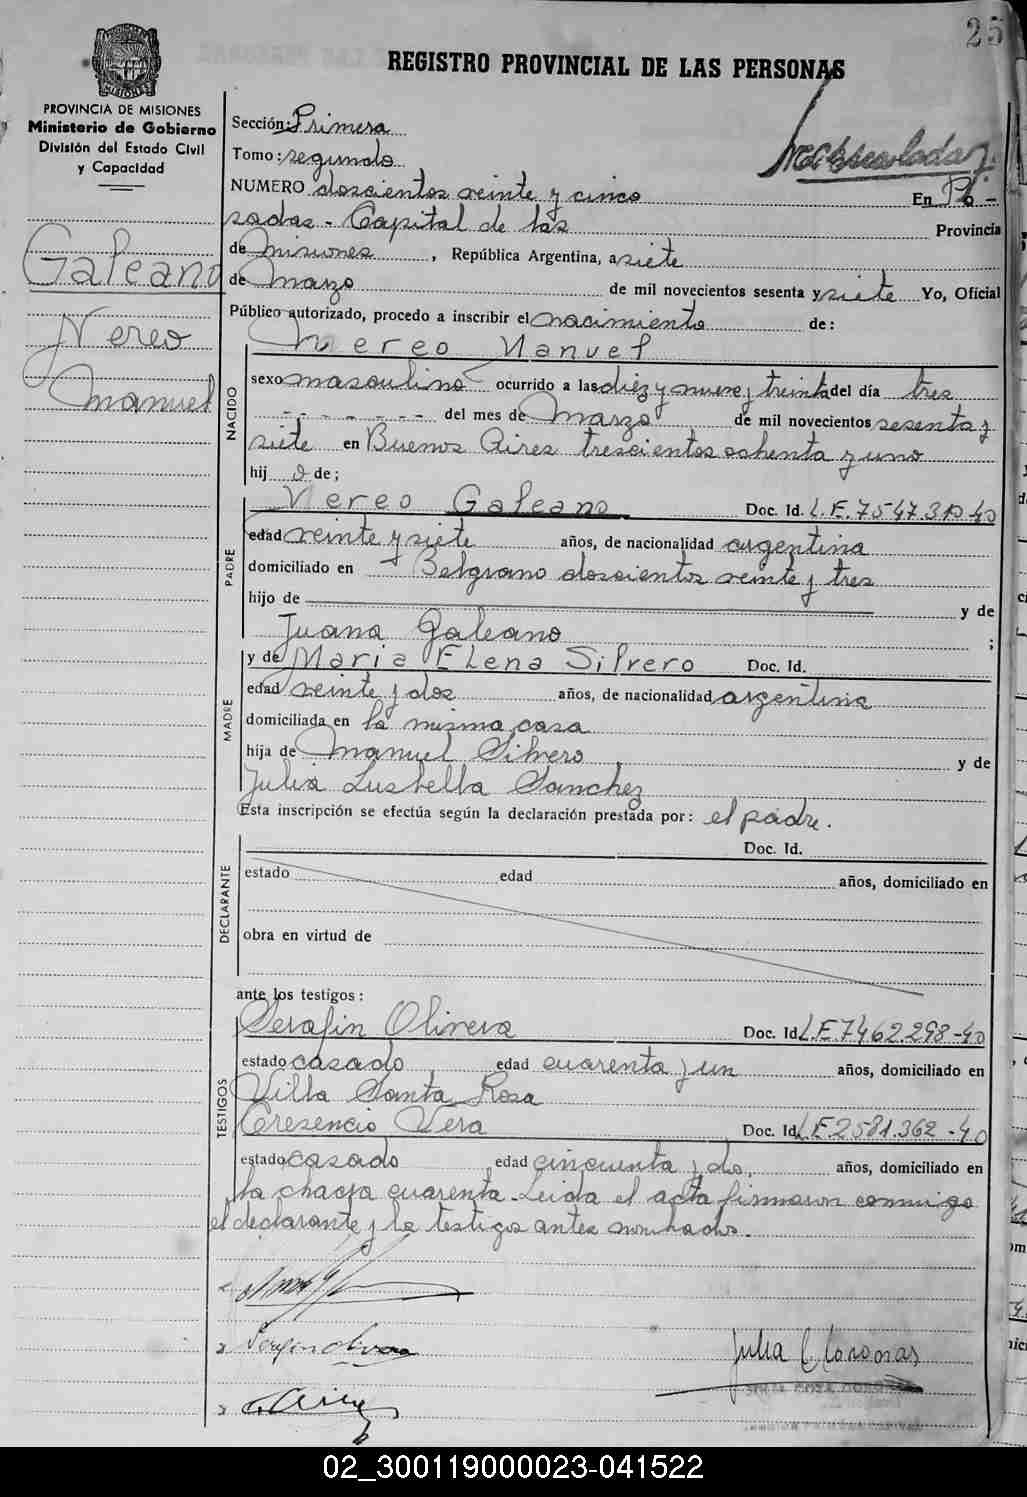 25
REGISTRO PROVINCIAL DE LAS PERSONAS
PROVINCIA DE MISIONES
Ministerio de Gobierno
División del Estado Civil
y Capacidad
Galeano
Nereo
Manuel
Sección: Primera
Tomo: segundo
NUMERO doscientos veinte y cinco En Po-
sadas - Capital de las Provincia
de Misiones, República Argentina, a siete
de Marzo de mil novecientos sesenta y siete Yo, Oficial
Público autorizado, procedo a inscribir el nacimiento de:
NACIDO
Nereo Manuel
sexo masculino ocurrido a las diez y nueve y treinta del día tres
- - - - - - - del mes de Marzo de mil novecientos sesenta y
siete en Buenos Aires trescientos ochenta y uno
hijo de;
PADRE
Nereo Galeano Doc. Id. L.E. 7547.310-40
edad veinte y siete años, de nacionalidad argentina
domiciliado en Belgrano doscientos veinte y tres
hijo de y de
Juana Galeano ;
MADRE
y de Maria Elena Silvero Doc. Id.
edad veinte y dos años, de nacionalidad argentina
domiciliada en la misma casa
hija de Manuel Silvero y de
Julia Sanchez
Esta inscripción se efectúa según la declaración prestada por: el padre.
DECLARANTE
Doc. Id.
estado edad años, domiciliado en
obra en virtud de
ante los testigos:
TESTIGOS
Serafin Olivera Doc. Id. L.E. 7462.298-40
estado casado edad cuarenta y un años, domiciliado en
Villa Santa Rosa
Cresencio Vera Doc. Id. L.E. 2581.362-40
estado casado edad cincuenta y do, años, domiciliado en
la chacra cuarenta. Leida el acta firmaron conmigo
el declarante y lo testigos antes nombrados.
Serafin Olivera
Julia
02_300119000023-041522